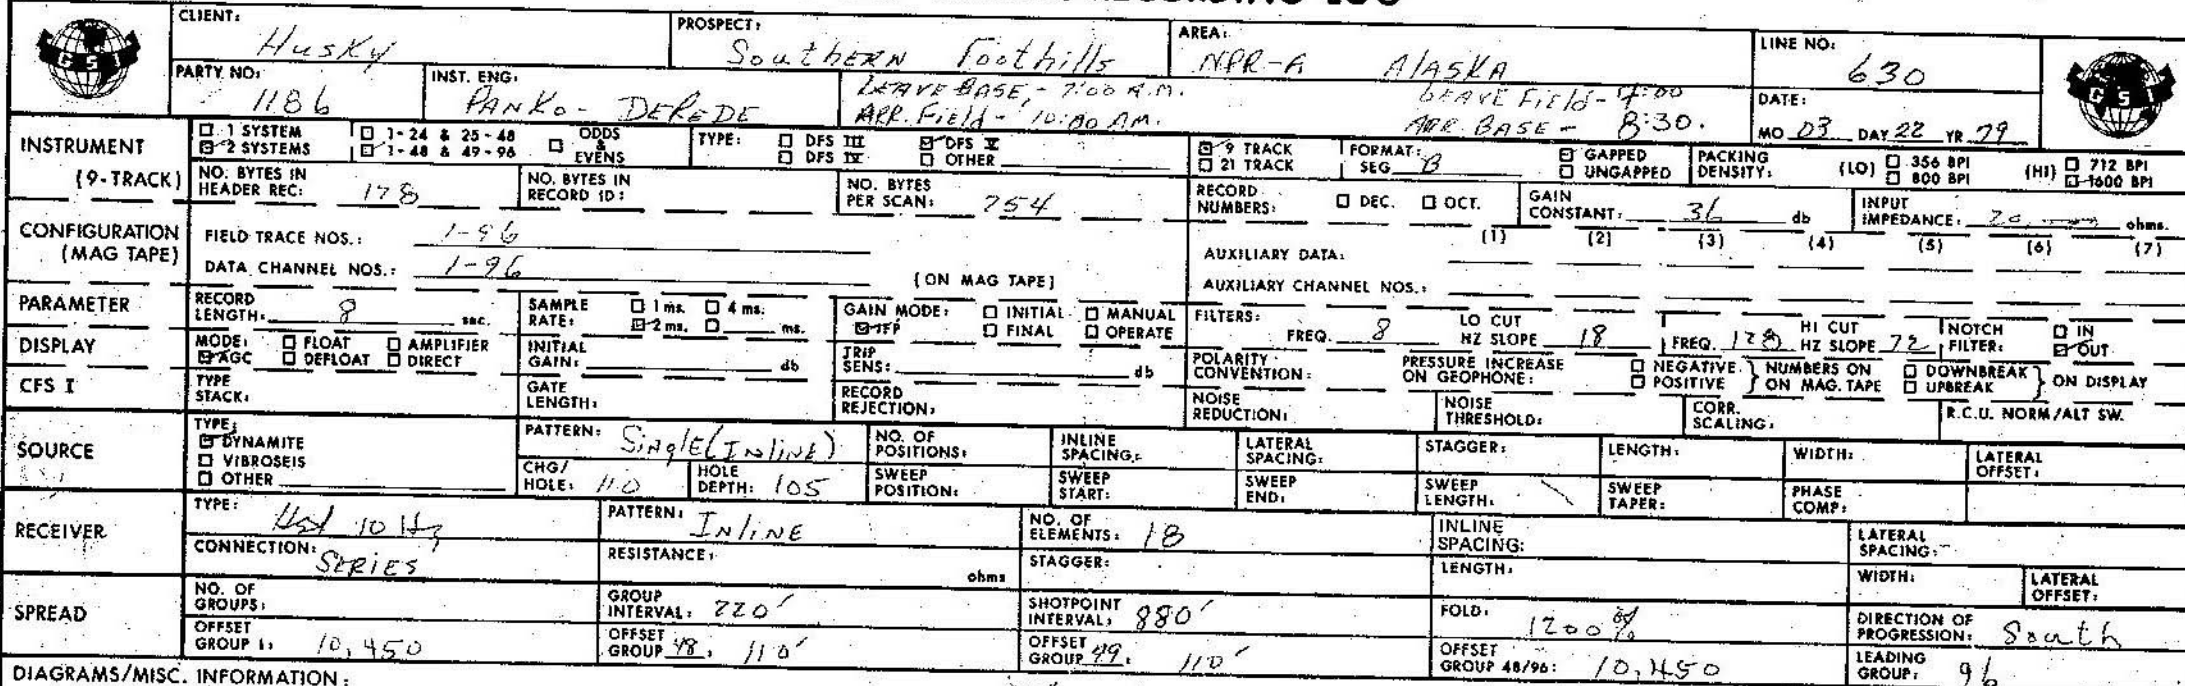 RECORDING LOG
GSI
CLIENT: Husky
PROSPECT: Southern Foothills
AREA: NPR-A Alaska
LINE NO: 630
GSI
PARTY NO: 1186
INST. ENG: PANKO- DEREDE
LEAVE BASE - 7:00 A.M.
ARR. Field - 10:00 AM.
LEAVE Field - 7:00
ARR. BASE - 8:30.
DATE:
MO 03 DAY 22 YR 79
INSTRUMENT
(9-TRACK)
☐ 1 SYSTEM
☑ 2 SYSTEMS
☐ 1-24 & 25-48
☑ 1-48 & 49-96
☐ ODDS & EVENS
TYPE: ☐ DFS III ☑ DFS V
☐ DFS IV ☐ OTHER
☑ 9 TRACK
☐ 21 TRACK
FORMAT: SEG B
☑ GAPPED
☐ UNGAPPED
PACKING DENSITY: (LO) ☐ 356 BPI ☐ 800 BPI
(HI) ☐ 712 BPI ☑ 1600 BPI
NO. BYTES IN HEADER REC: 178
NO. BYTES IN RECORD ID:
NO. BYTES PER SCAN: 254
RECORD NUMBERS: ☐ DEC. ☐ OCT.
GAIN CONSTANT: 36 db
INPUT IMPEDANCE: ohms.
CONFIGURATION
(MAG TAPE)
FIELD TRACE NOS.: 1-96
DATA CHANNEL NOS.: 1-96
(ON MAG TAPE)
(1) (2) (3) (4) (5) (6) (7)
AUXILIARY DATA:
AUXILIARY CHANNEL NOS.:
PARAMETER
RECORD LENGTH: 8 sec.
SAMPLE RATE: ☐ 1 ms. ☐ 4 ms.
☑ 2 ms. ☐ ms.
GAIN MODE: ☐ INITIAL ☐ MANUAL
☑ IFP ☐ FINAL ☐ OPERATE
FILTERS:
FREQ. 8 LO CUT HZ SLOPE 18
FREQ. 128 HI CUT HZ SLOPE 72
NOTCH FILTER: ☐ IN ☑ OUT
DISPLAY
MODE: ☐ FLOAT ☐ AMPLIFIER
☑ AGC ☐ DEFLOAT ☐ DIRECT
INITIAL GAIN: db
TRIP SENS: db
POLARITY CONVENTION:
PRESSURE INCREASE ON GEOPHONE:
☐ NEGATIVE
☐ POSITIVE
NUMBERS ON ON MAG. TAPE
☐ DOWNBREAK
☐ UPBREAK
ON DISPLAY
CFS I
TYPE STACK:
GATE LENGTH:
RECORD REJECTION:
NOISE REDUCTION:
NOISE THRESHOLD:
CORR. SCALING:
R.C.U. NORM/ALT SW.
SOURCE
TYPE:
☑ DYNAMITE
☐ VIBROSEIS
☐ OTHER
PATTERN: Single (Inline)
NO. OF POSITIONS:
INLINE SPACING:
LATERAL SPACING:
STAGGER:
LENGTH:
WIDTH:
LATERAL OFFSET:
CHG/ HOLE: 110
HOLE DEPTH: 105
SWEEP POSITION:
SWEEP START:
SWEEP END:
SWEEP LENGTH:
SWEEP TAPER:
PHASE COMP:
RECEIVER
TYPE: 10 Hz
PATTERN: Inline
NO. OF ELEMENTS: 18
INLINE SPACING:
LATERAL SPACING:
CONNECTION: SERIES
RESISTANCE: ohms
STAGGER:
LENGTH:
WIDTH:
LATERAL OFFSET:
SPREAD
NO. OF GROUPS:
GROUP INTERVAL: 220'
SHOTPOINT INTERVAL: 880'
FOLD: 1200%
DIRECTION OF PROGRESSION: South
OFFSET GROUP 1: 10,450
OFFSET GROUP 48: 110'
OFFSET GROUP 49: 110'
OFFSET GROUP 48/96: 10,450
LEADING GROUP: 96
DIAGRAMS/MISC. INFORMATION: